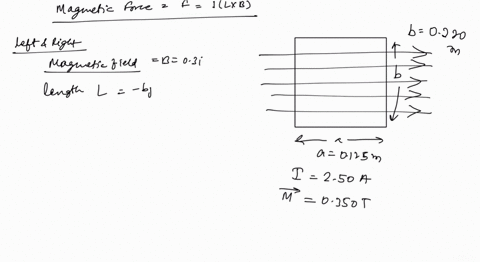 Magnetic Force = F = I(L×B)
Left & Right
Magnetic field = B = 0.3i
length L = -bj
b = 0.220 m
b
a
a = 0.125 m
I = 2.50 A
M = 0.350T